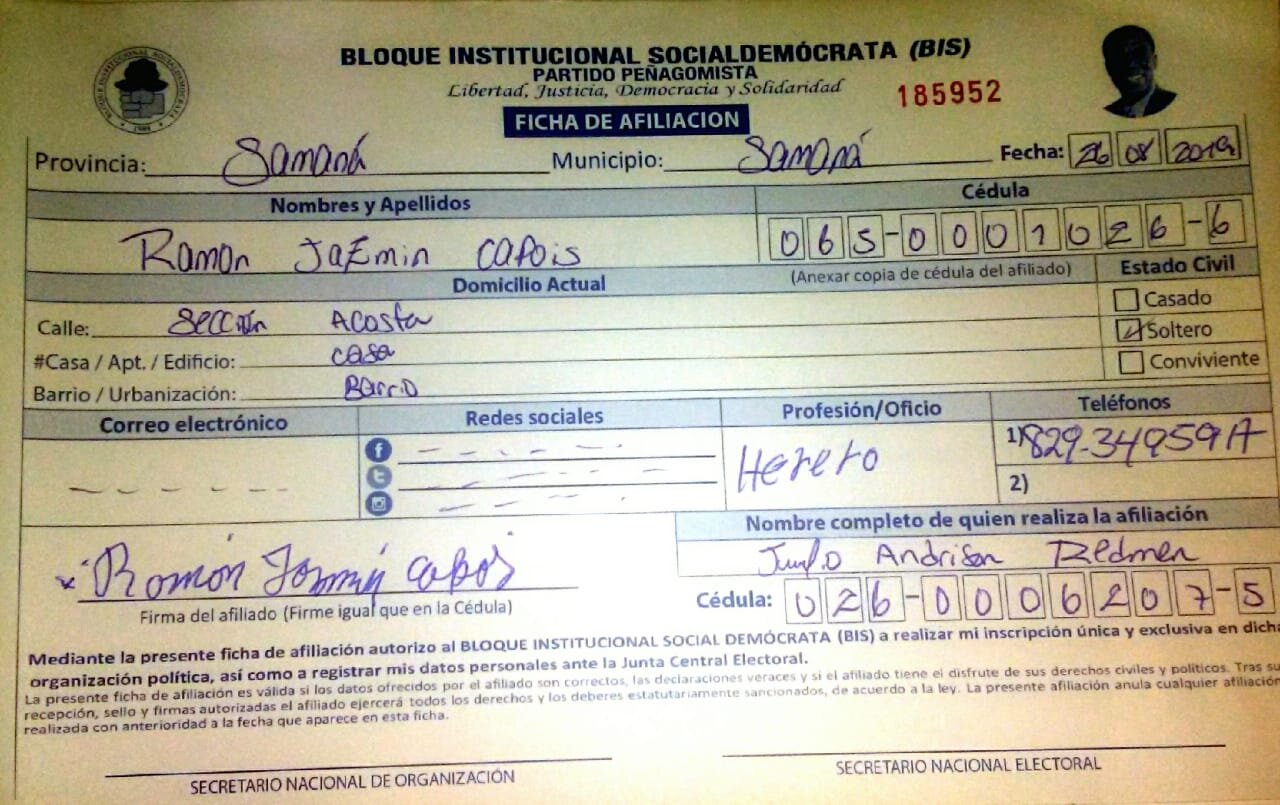 BLOQUE INSTITUCIONAL SOCIALDEMÓCRATA (BIS)
PARTIDO PEÑAGOMISTA
Libertad, Justicia, Democracia y Solidaridad
185952
FICHA DE AFILIACION
Provincia: Samaná Municipio: Samaná Fecha: 26 08 2019
Nombres y Apellidos Cédula
Ramon Jazmin Capois 065-0001026-6
(Anexar copia de cédula del afiliado)
Domicilio Actual Estado Civil
Calle: Sección Acosta Casado
#Casa / Apt. / Edificio: casa Soltero
Barrio / Urbanización: Barrio Conviviente
Correo electrónico Redes sociales Profesión/Oficio Teléfonos
Herero 1) 829-34959
2)
Nombre completo de quien realiza la afiliación
Andrison Redmen
Ramón Capois
Firma del afiliado (Firme igual que en la Cédula) Cédula: 026-0006207-5
Mediante la presente ficha de afiliación autorizo al BLOQUE INSTITUCIONAL SOCIAL DEMÓCRATA (BIS) a realizar mi inscripción única y exclusiva en dicha
organización política, así como a registrar mis datos personales ante la Junta Central Electoral.
La presente ficha de afiliación es válida si los datos ofrecidos por el afiliado son correctos, las declaraciones veraces y si el afiliado tiene el disfrute de sus derechos civiles y políticos. Tras su
recepción, sello y firmas autorizadas el afiliado ejercerá todos los derechos y los deberes estatutariamente sancionados, de acuerdo a la ley. La presente afiliación anula cualquier afiliación
realizada con anterioridad a la fecha que aparece en esta ficha.
SECRETARIO NACIONAL DE ORGANIZACIÓN SECRETARIO NACIONAL ELECTORAL